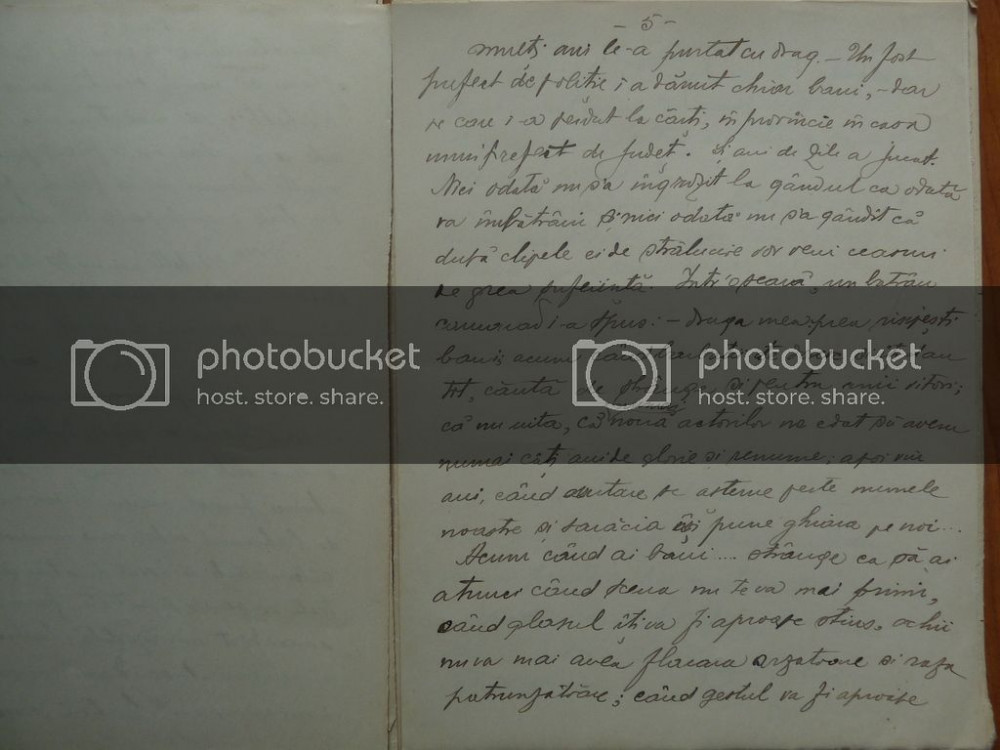 - 5 -
mulți ani le-a purtat cu drag. - Un fost
prefect de poliție i a dăruit chiar bani, - dar
pe care i-a pierdut la cărți, în provincie în casa
unui prefect de județ. și ani de zile a jucat.
Nici odată nu s'a îngrozit la gândul ca odată
va îmbătrâni și nici odată nu s'a gândit că
după clipele ei de strălucire vor veni ceasuri
de grea suferință. Într'o seară, un bătrân
camarad i-a spus: - draga mea prea risipești
banii; acum când
caută de strânge și pentru mii viitori;
că nu uita, că nouă actorilor ne e dat să avem
numai câți ani de glorie și renume; apoi vin
ani, când uitare se așterne peste numele
noastre și sărăcia își pune ghiara pe noi...
Acum când ai bani... strânge ca să ai
atunci când scena nu te va mai primi,
când glasul îți va fi aproape stins, ochii
nu va mai avea flacăra arzătoare și raza
pătrunzătoare; când gestul va fi aproape
photobucket
host. store. share.
photobucket
host. store. share.